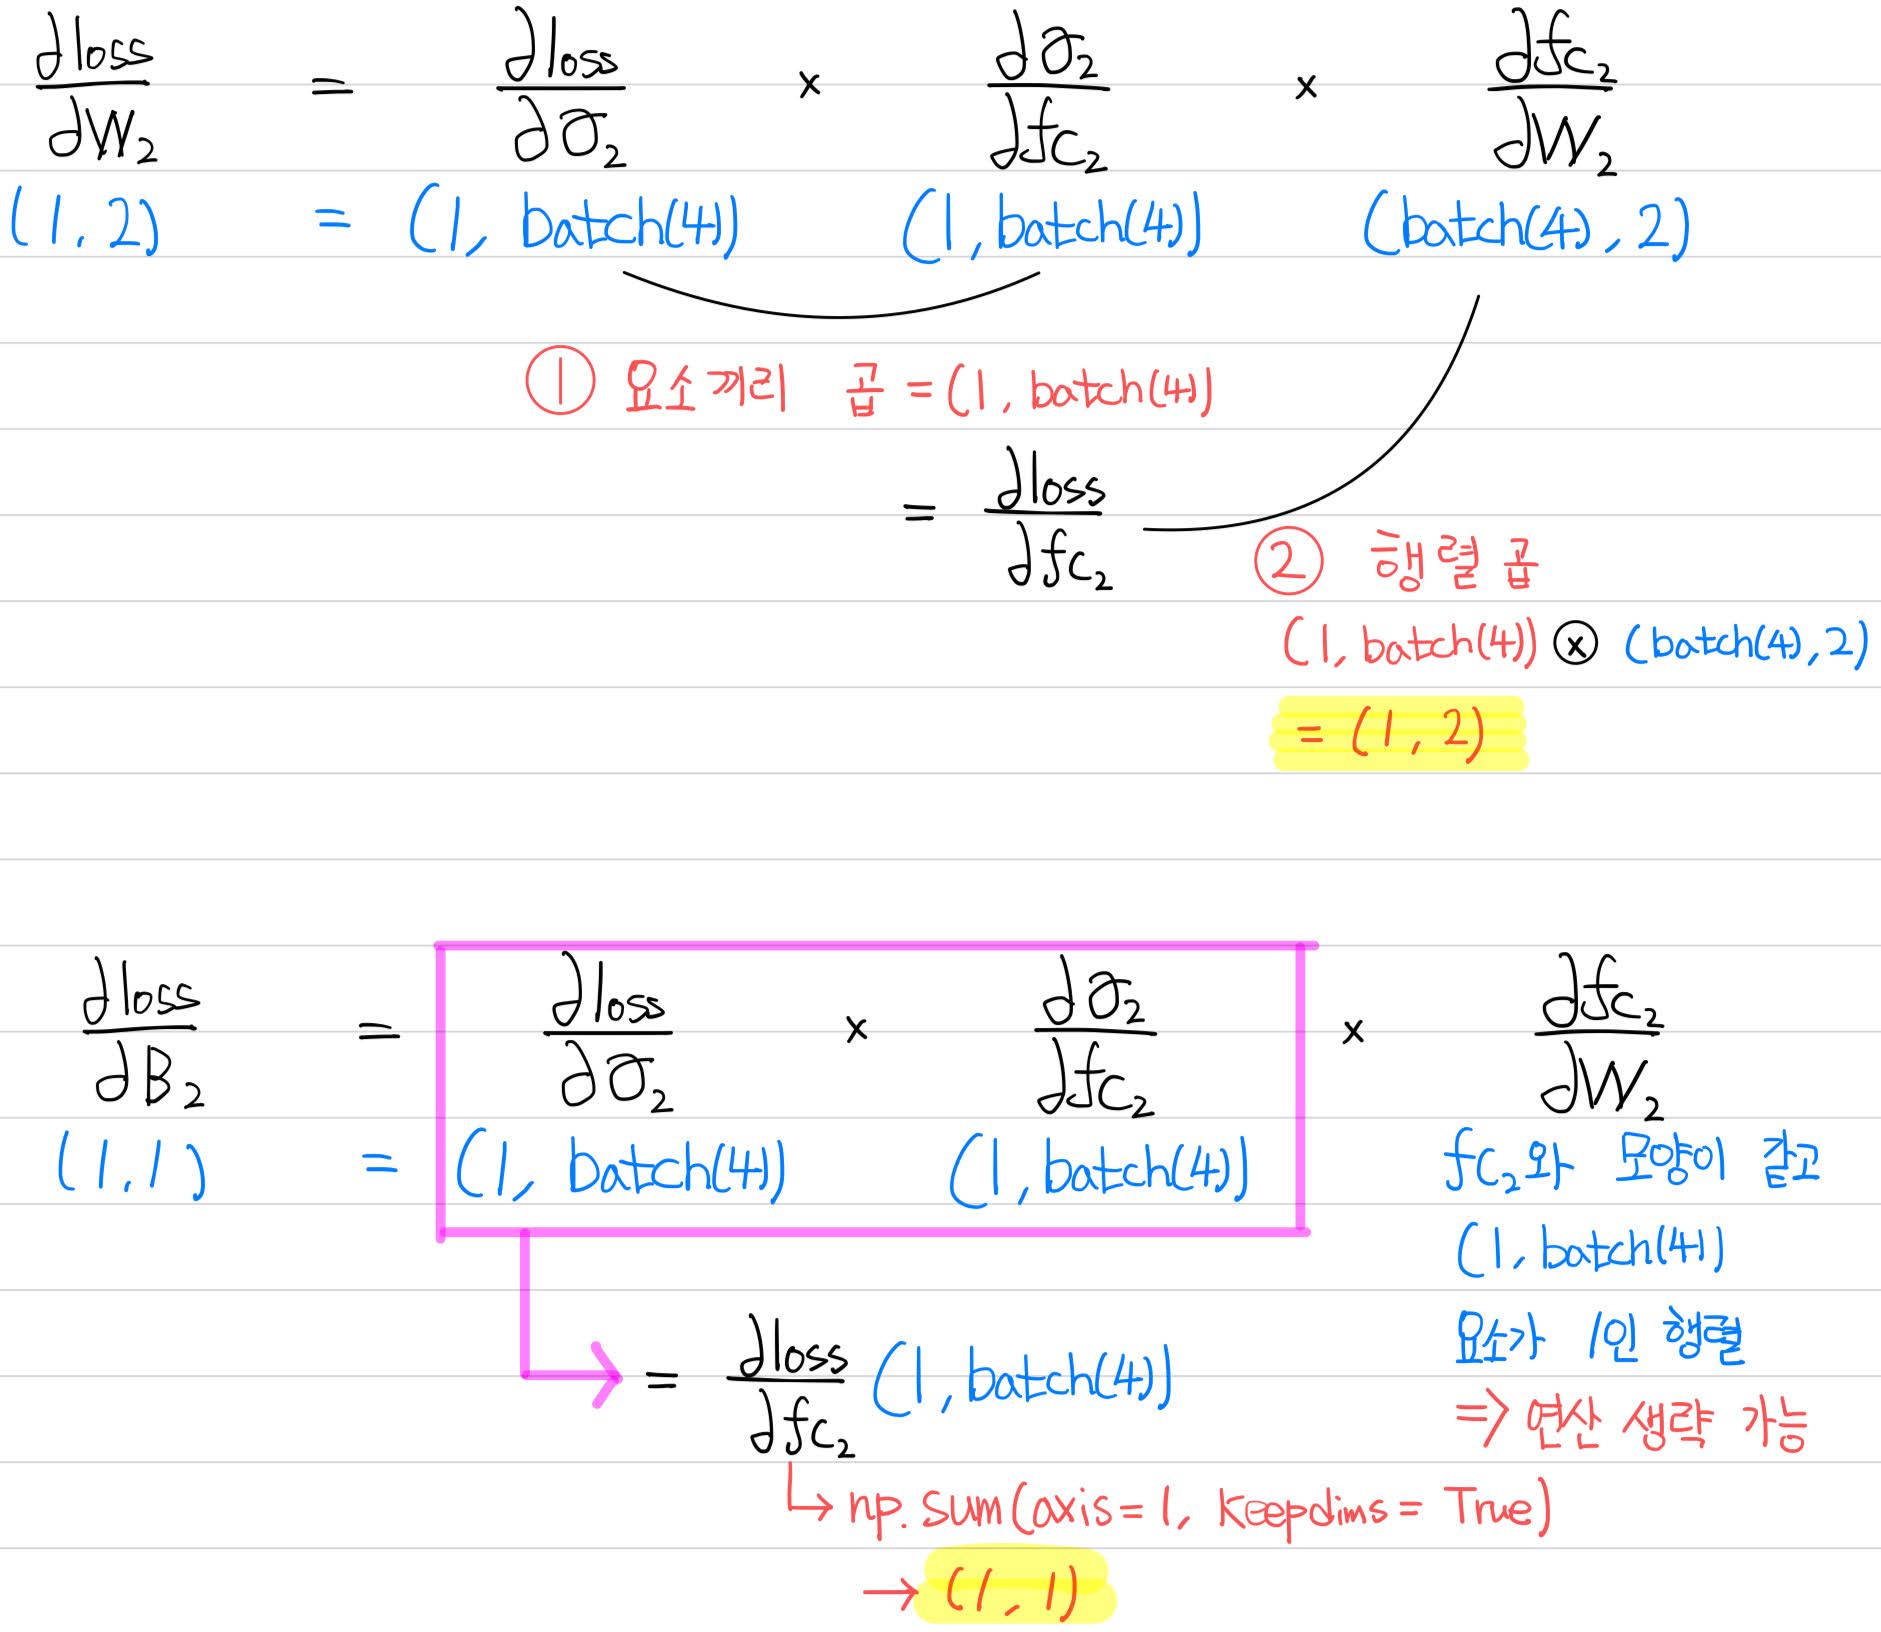 ∂loss/∂W₂ = ∂loss/∂σ₂ × ∂σ₂/∂fc₂ × ∂fc₂/∂W₂
(1, 2) = (1, batch(4)) (1, batch(4)) (batch(4), 2)
① 요소끼리 곱 = (1, batch(4))
= ∂loss/∂fc₂
② 행렬 곱
(1, batch(4)) ⊗ (batch(4), 2)
= (1, 2)
∂loss/∂B₂ = ∂loss/∂σ₂ × ∂σ₂/∂fc₂ × ∂fc₂/∂W₂
(1, 1) = (1, batch(4)) (1, batch(4)) fc₂와 모양이 같고
(1, batch(4))
요소가 1인 행렬
= ∂loss/∂fc₂ (1, batch(4))
⇒ 연산 생략 가능
↳ np.sum(axis=1, keepdims = True)
→ (1, 1)